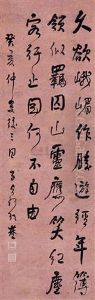 久欲峨嵋作勝遊經年簿
領似羈囚山靈應笑紅塵
客行止因何不自由
癸亥仲